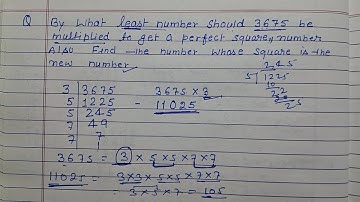 Q By What least number should 3675 be
multiplied to get a perfect square number
Also Find the number whose square is the
new number.
3 3675
5 1225
5 245
7 49
7 7
1
3675 × 3
- 11025
245
5 1225
10
22
20
25
3675 = 3 × 5×5 × 7×7
11025 = 3×3×5×5×7×7
= 3×5×7 = 105